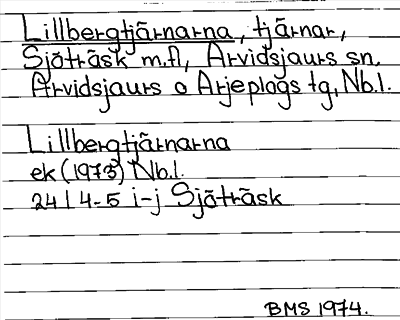 Lillbergtjärnarna, tjärnar,
Sjöträsk m.fl, Arvidsjaurs sn.
Arvidsjaurs o Arjeplogs tg, Nb.l.
Lillbergtjärnarna
ek (1973) Nb.l.
24 I 4-5 i-j Sjöträsk
BMS 1974.